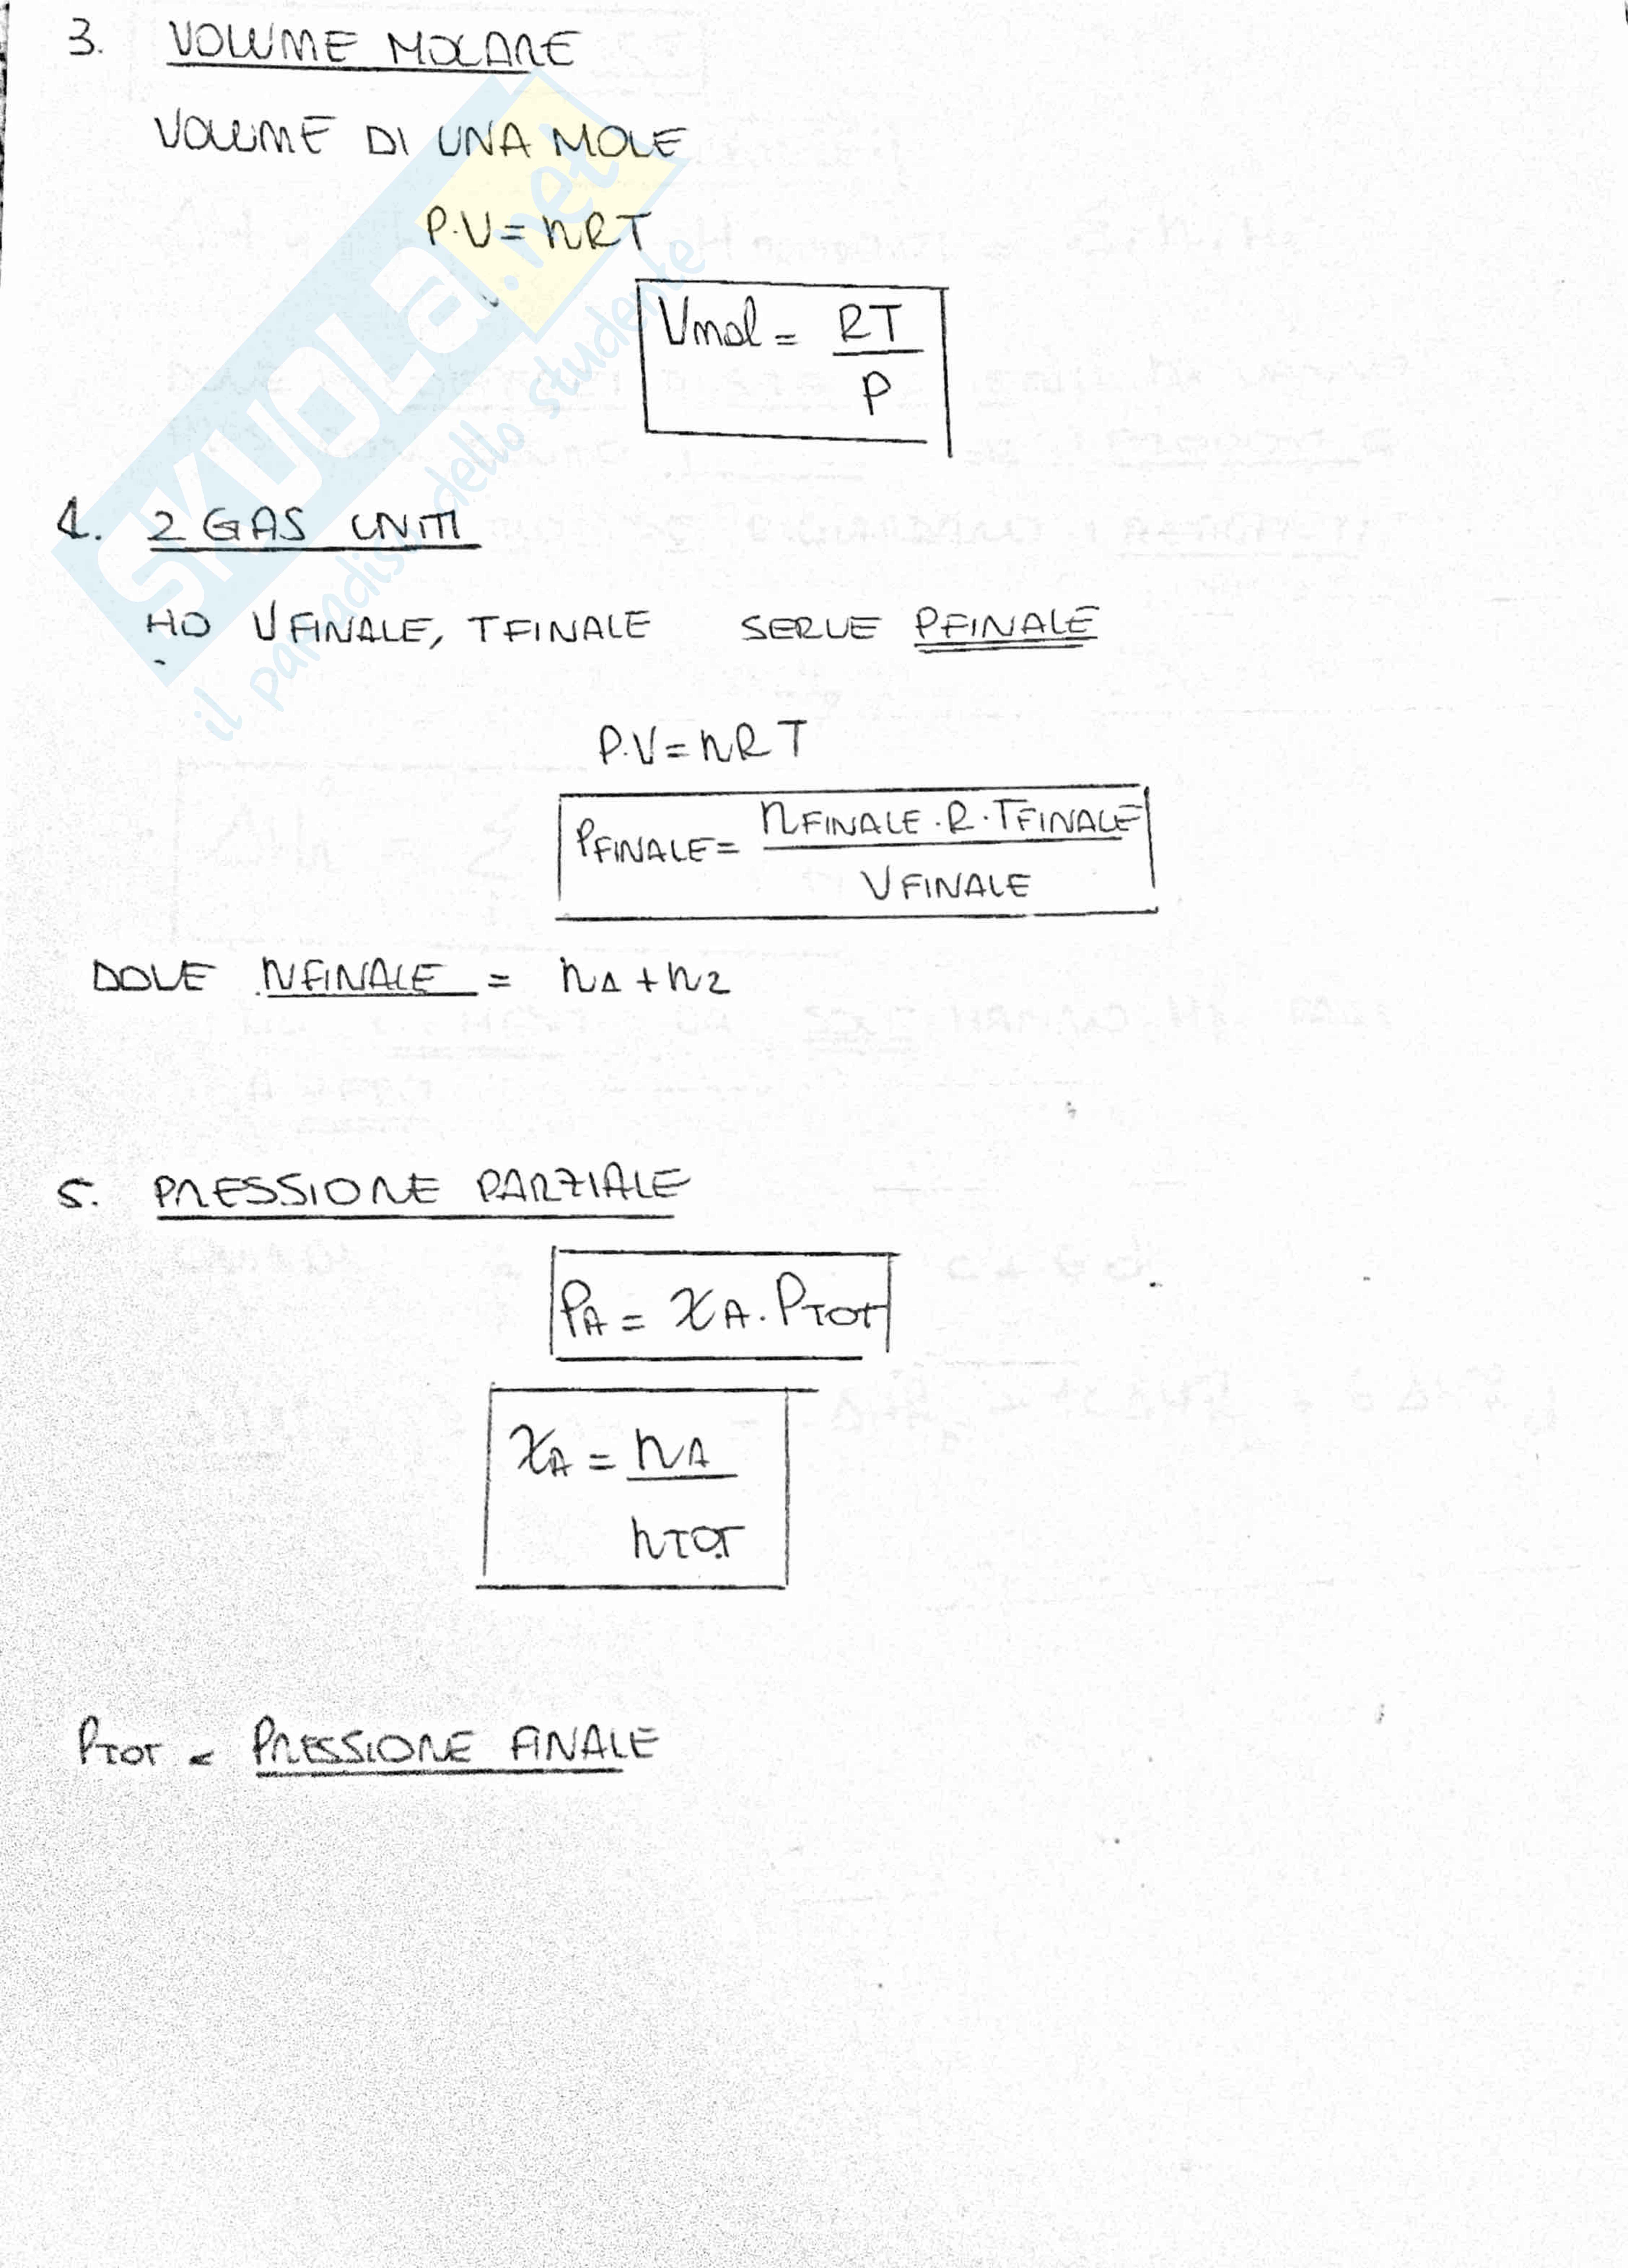 3. VOLUME MOLARE
VOLUME DI UNA MOLE
P·V = nRT
Vmol = RT
P
4. 2 GAS UNITI
HO V FINALE, T FINALE SERVE PFINALE
P·V = nRT
PFINALE = nFINALE · R · TFINALE
V FINALE
DOVE NFINALE = n1 + n2
5. PRESSIONE PARZIALE
PA = χA · PTOT
χA = nA
nTOT
PTOT = PRESSIONE FINALE
SKUOLA.net
il paradiso dello studente